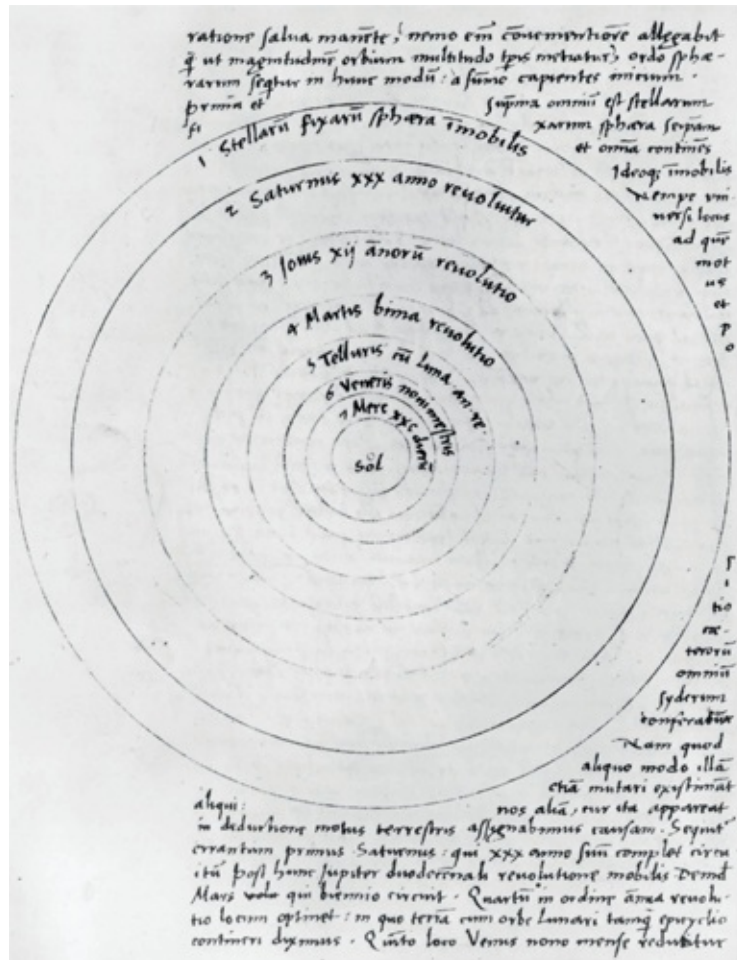 ratione salva manēte, nemo em̄ cōvenientiorē allegabit
q̄ ut magnitudinē orbium multitudo tp̄is metiatur, ordo sphæ-
rarum seqtur in hunc modū: a sūmo capientes inicium.
prima et sup̄ma omniū est stellarum
fi xarum sphæra seipsam
et omīa continēs
Ideoq; īmobilis
Nempe uni
versi locus
ad quē
mot
us
et
p
o
1 Stellarū fixarū sphæra īmobilis
2 Saturnus xxx anno revolvitur
3 Jovis xij ānorū revolutio
4 Martis bima revolutio
5 Telluris cū luna an. re.
6 Veneris nonimestris
7 Merc xxc dierū
Sol
s
i
tio
cæ-
terorū
omniū
syderum
conferatur
Nam quod
aliquo modo illā
etiā mutari existimāt
aliqui: nos aliā, cur ita appareat
in deductione motus terrestris assignabimus causam. Sequit̄
errantium primus Saturnus: qui xxx anno suū complet circu
itū Post hunc Jupiter duodecenali revolutione mobilis Deind
Mars qui biennio circuit. Quartū in ordine annua revolu-
tio locum optinet: in quo terrā cum orbe Lunari tamq̄ epicyclio
contineri diximus. Quinto loco Venus nono mense reducitur